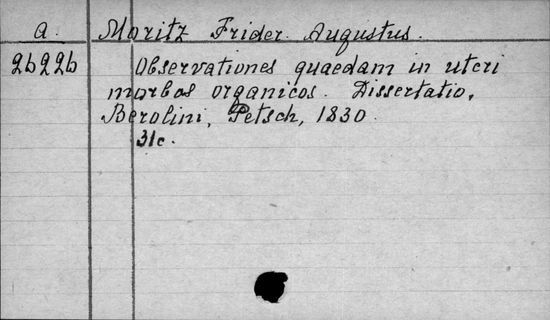 a. Moritz Frider. Augustus.
26226 Observationes quaedam in uteri
morbos organicos. Dissertatio,
Berolini, Petsch, 1830.
31c.